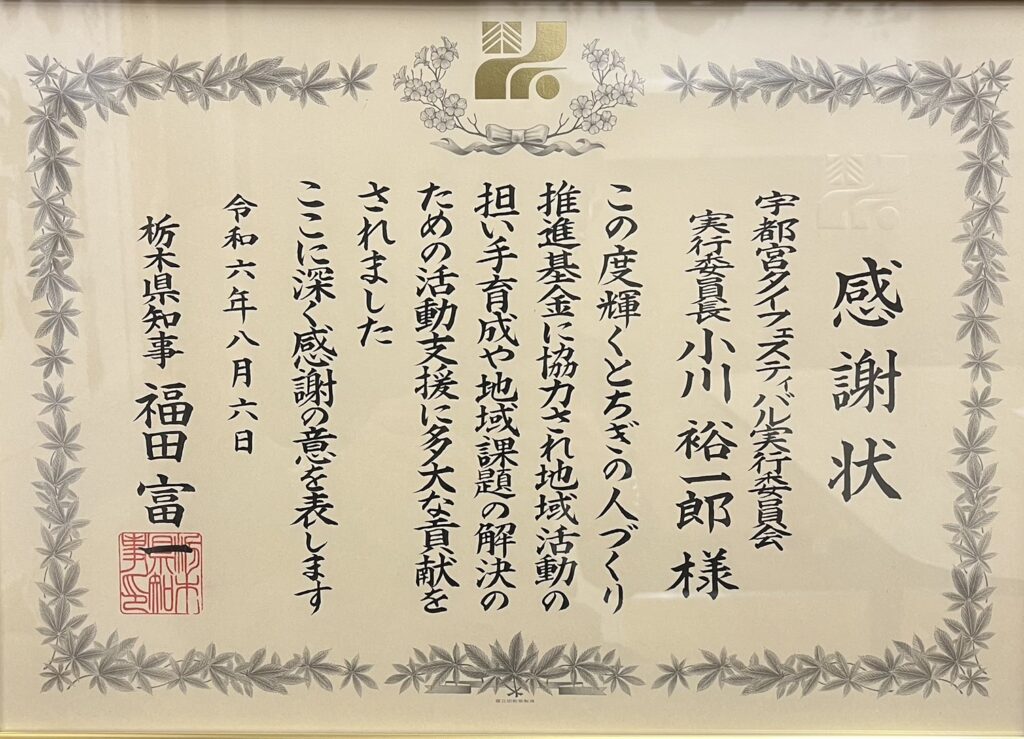 感謝状
宇都宮タイフェスティバル実行委員会
実行委員長 小川 裕一郎 様
この度輝くとちぎの人づくり
推進基金に協力され地域活動の
担い手育成や地域課題の解決の
ための活動支援に多大な貢献を
されました
ここに深く感謝の意を表します
令和六年八月六日
栃木県知事 福田 富一
栃木県知事印